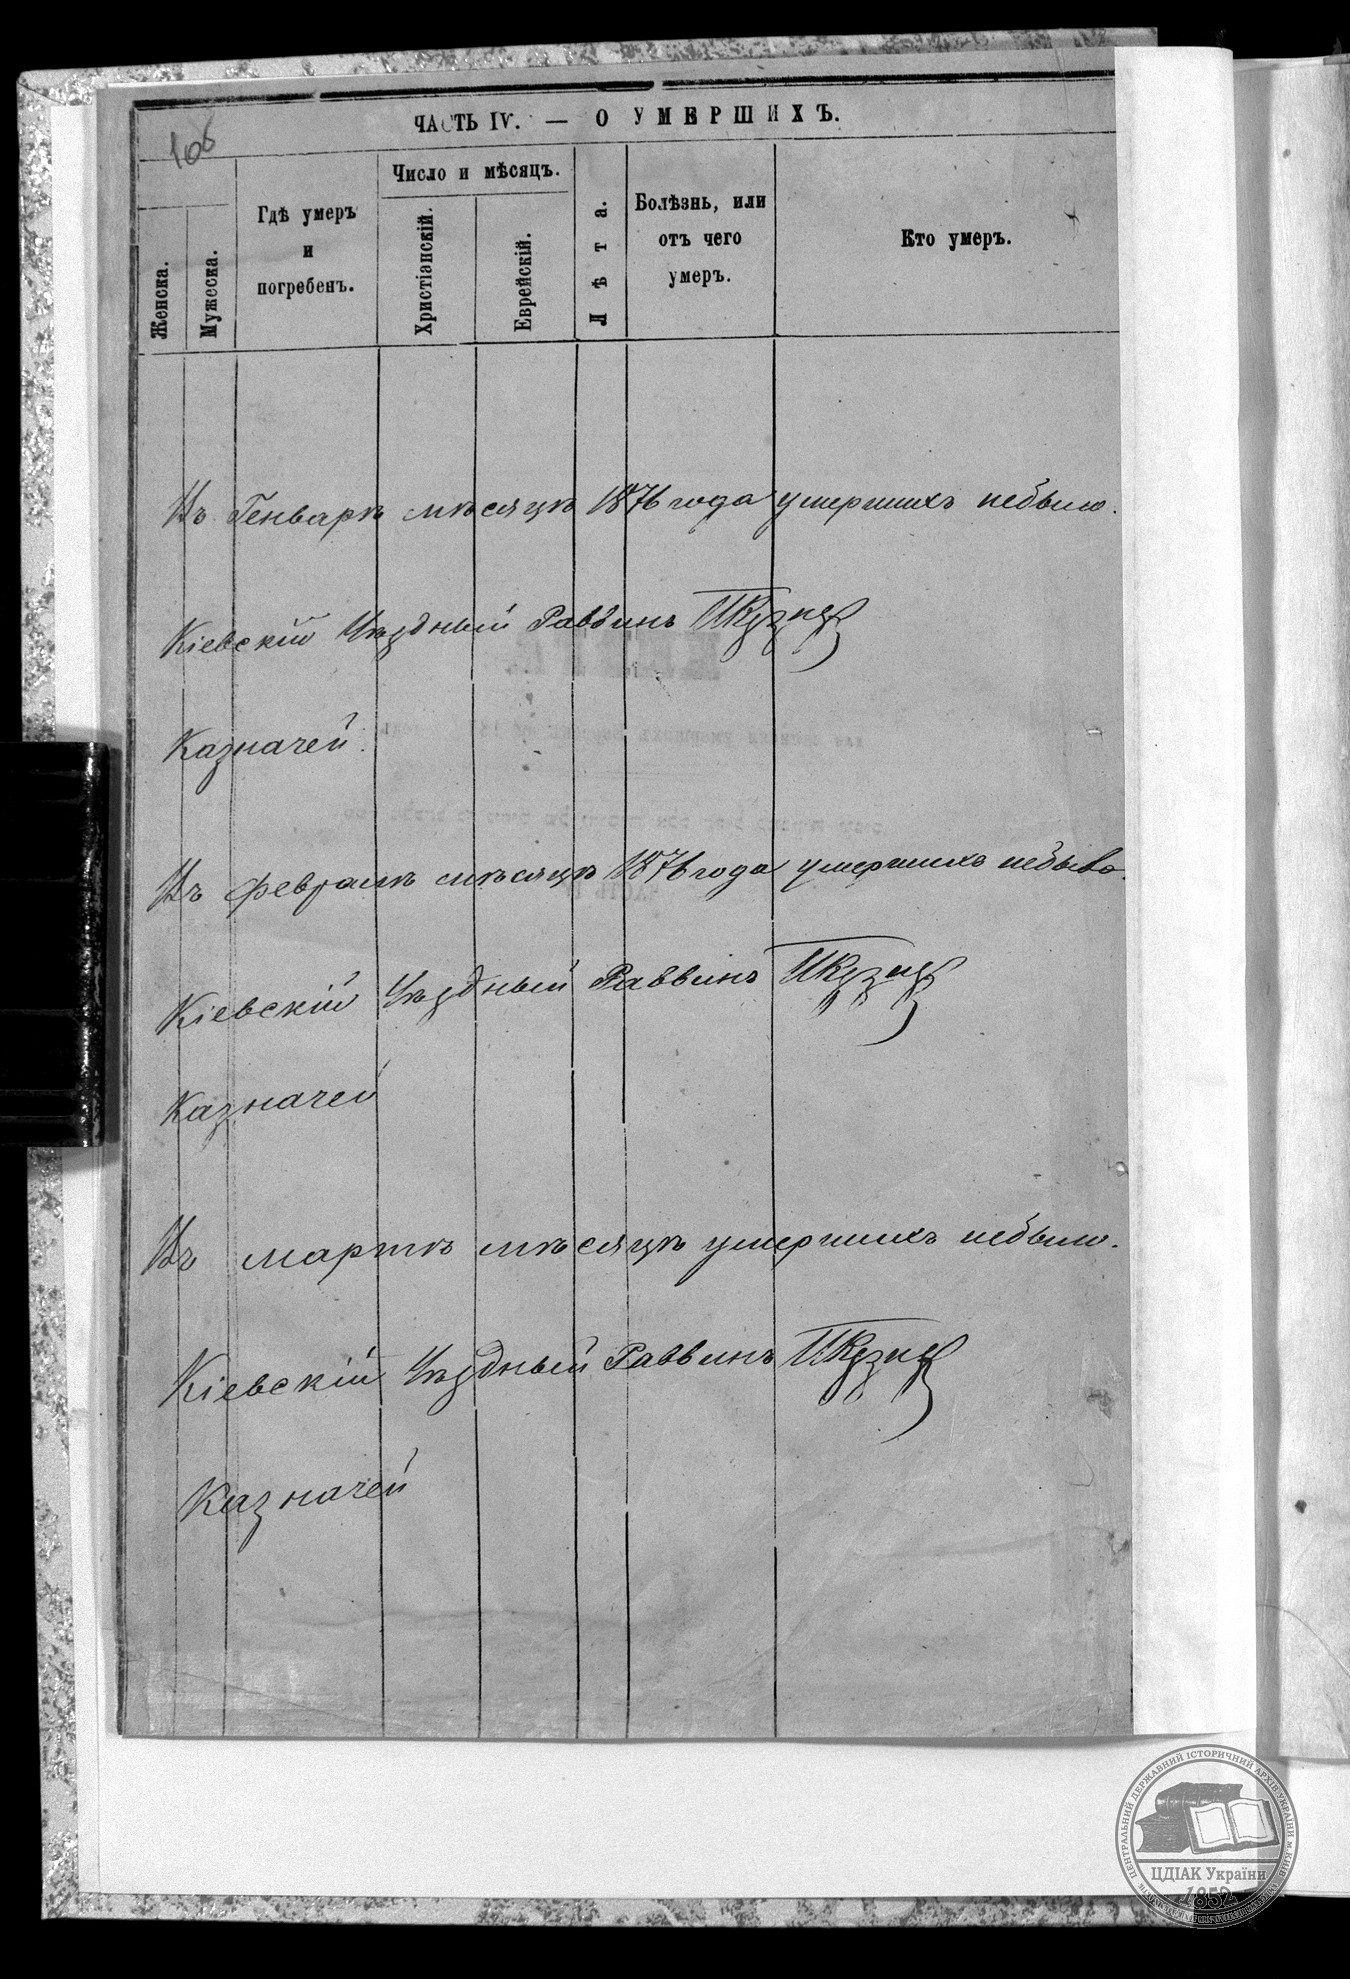 106
ЧАСТЬ IV. — О УМЕРШИХЪ.
Женска.
Мужеска.
Гдѣ умеръ
и
погребенъ.
Число и мѣсяцъ.
Христіанскій.
Еврейскій.
Лѣта.
Болѣзнь, или
отъ чего
умеръ.
Кто умеръ.
Въ Генварѣ мѣсяцѣ 1876 года умершихъ небыло.
Кіевскій Уѣздный Раввинъ
Казначей
Въ февралѣ мѣсяцѣ 1876 года умершихъ небыло.
Кіевскій Уѣздный Раввинъ
Казначей
Въ мартѣ мѣсяцѣ умершихъ небыло.
Кіевскій Уѣздный Раввинъ
Казначей
ЦЕНТРАЛЬНИЙ ДЕРЖАВНИЙ ІСТОРИЧНИЙ АРХІВ УКРАЇНИ М.КИЇВ
ЦДІАК України
1852